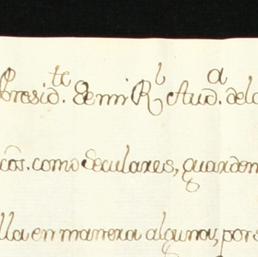 Presid.te de mi Rl Aud.a delo
cos. como Seculares, guarden
lla en manera alguna, pors